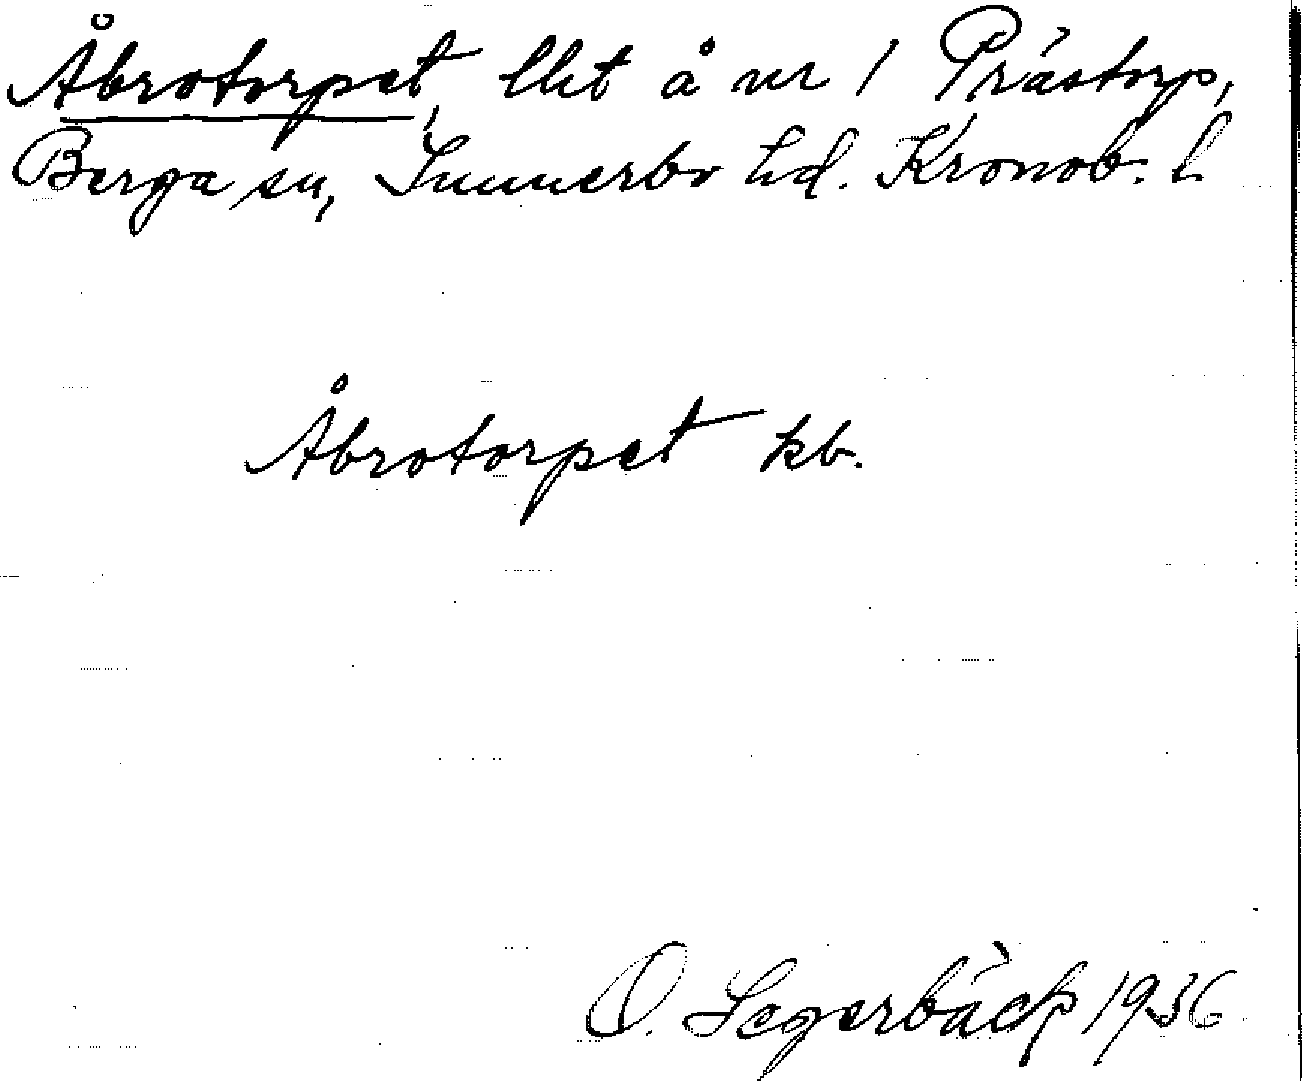 Åbrotorpet, lht å nr 1 Prästorp,
Berga sn, Sunnerbo hd. Kronob. l
Åbrotorpet kb.
O. Segerbäck 1936